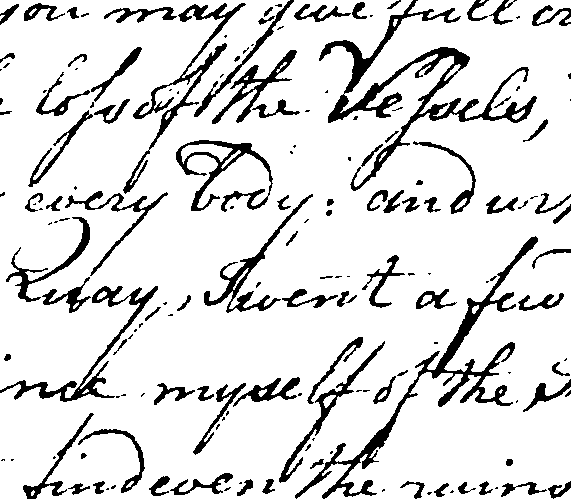 you may give full
loss of the Vessels,
every body: and
Quay, I went a few
myself of the
find even the